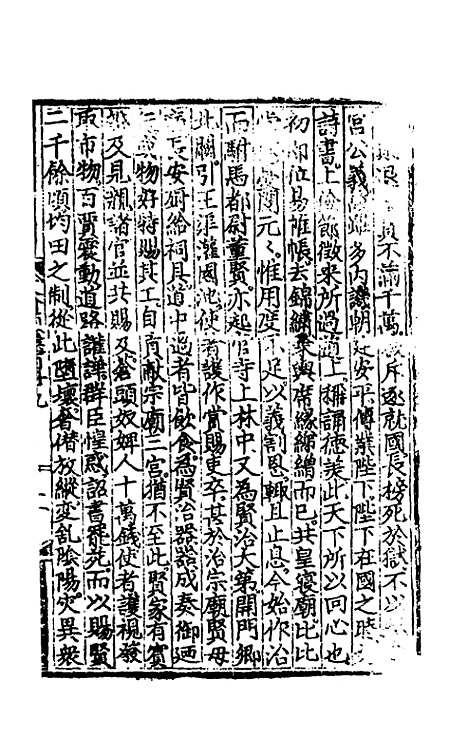 退貲不滿千萬斥逐就國長榜死於獄不以
公義雖多內譏朝廷安平傳業陛下陛下在國之時
詩書上儉節徵來所過道上稱誦德美此天下所以回心也
初即位易帷帳去錦繡乗輿席緣綈繒而已共皇寑廟比比
閔元元惟用度不足以義割恩輒且止息今始作治
而駙馬都尉董賢亦起官寺上林中又為賢治大第開門鄉
北闕引王渠灌園池使者護作賞賜吏卒甚於治宗廟賢母
長安厨給祠具道中過者皆飲食為賢治器器成奏御廼
物好特賜其工自貢獻宗廟三宮猶不至此賢家有賓
及見親諸官並共賜及蒼頭奴婢人十萬錢使者護視發
取市物百賈震動道路讙譁群臣惶惑詔書罷苑而以賜賢
二千餘頃均田之制從此墮壞奢僣放縱變亂陰陽災異衆